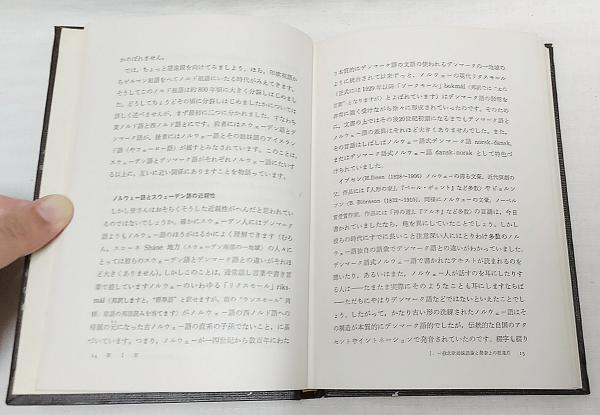 かのぼれません。
では，ちょっと望遠鏡を向けてみましょう。ほら，印欧祖語か
らゲルマン祖語をへてノルド祖語にいたる時代がみえてきます。
そうしてこのノルド祖語は約800年頃に大きく分裂しはじめまし
た。どうしてちょうどその頃に分裂しはじめましたかについては
詳しく述べませんが，まず最初に二つに分かれました。すなわち
東ノルド語と西ノルド語とにです。前者にはスウェーデン語とデ
ンマーク語が，後者にはノルウェー語とその姉妹語のアイスラン
ド語（やフェーロー語）が属すとみなされています。このことは，
スウェーデン語とデンマーク語がそれぞれノルウェー語にいた
る以上に，互いに近い関係にありますことを物語っています。
ノルウェー語とスウェーデン語の近親性
しかし皆さんはおそらくそうした近親性がへんだと思われてい
るのではないでしょうか。確かにスウェーデン人にはデンマーク
語よりもノルウェー語のほうがはるかによく理解できます（むろ
ん，スコーネ Skåne 地方（スウェーデン南部の一地域）の人々に
とっては彼らのスウェーデン語とデンマーク語との違いがそれほ
ど大きくありません）。しかしこのことは，通常話し言葉や書き言
葉で接していますノルウェーのいわゆる「リクスモール」riks-
mål（邦訳しますと，“標準語”と訳せますが，前の“ランスモール”同
様，原語の邦語読みを当てます）がノルウェー語の西ノルド語への
帰属の元になった古ノルウェー語の直系の子孫でないこと，に基
づいています。つまり，ノルウェーが一四世紀から数百年にわた
14 第 I 章
り本質的にデンマーク語の文語の使われるデンマークの一地域の
ように統合されて以来ずっと，ノルウェーの現代リクスモール
（正式には1929年以降「ブークモール」bokmål（邦訳では“文の
言葉”となりますが）とよばれています）はデンマーク語の影響を
非常に強く受けながら徐々に形成されていったのです。そのため
に，文書の上ではその後20世紀初頭になるまでもデンマーク語と
ノルウェー語の差異はそれほど大きくありませんでした。また，
その言語はしばしばノルウェー式デンマーク語 norsk-dansk，
またはデンマーク語式ノルウェー語 dansk-norsk として特色づ
けられていました。
イプセン（H.Ibsen（1828～1906）ノルウェーの誇る文豪，近代演劇の
父。作品には『人形の家』『ペール・ギュント』など多数）やビョルン
ソン（B. Björnsson（1832～1910）。同様にノルウェーの文豪，ノーベル
賞受賞作家。作品には『神の道で』『アルネ』など多数）の言語は，今日
書かれていましたなら，疱を異にしていたことでしょう。しかし
彼らの時代にすでに長いこと注意深い人にはとりわけ多数のノル
ウェー語独自の語彙でデンマーク語との違いがわかっていました。
デンマーク語式ノルウェー語で書かれたテキストが読まれるのを
聞いたり，あるいはまた，ノルウェー人が話すのを耳にしたりす
る人は――たまたま実際にそのようなことも耳にしますならば
――ただちにやはりデンマーク語などではないといえたことでし
ょう。したがって，かなり古い形の洗練されたノルウェー語はそ
の構造が本質的にデンマーク語的でしたが，伝統的な自国のアク
セントやイントネーションで発音されていたのです。綴字も綴り
15